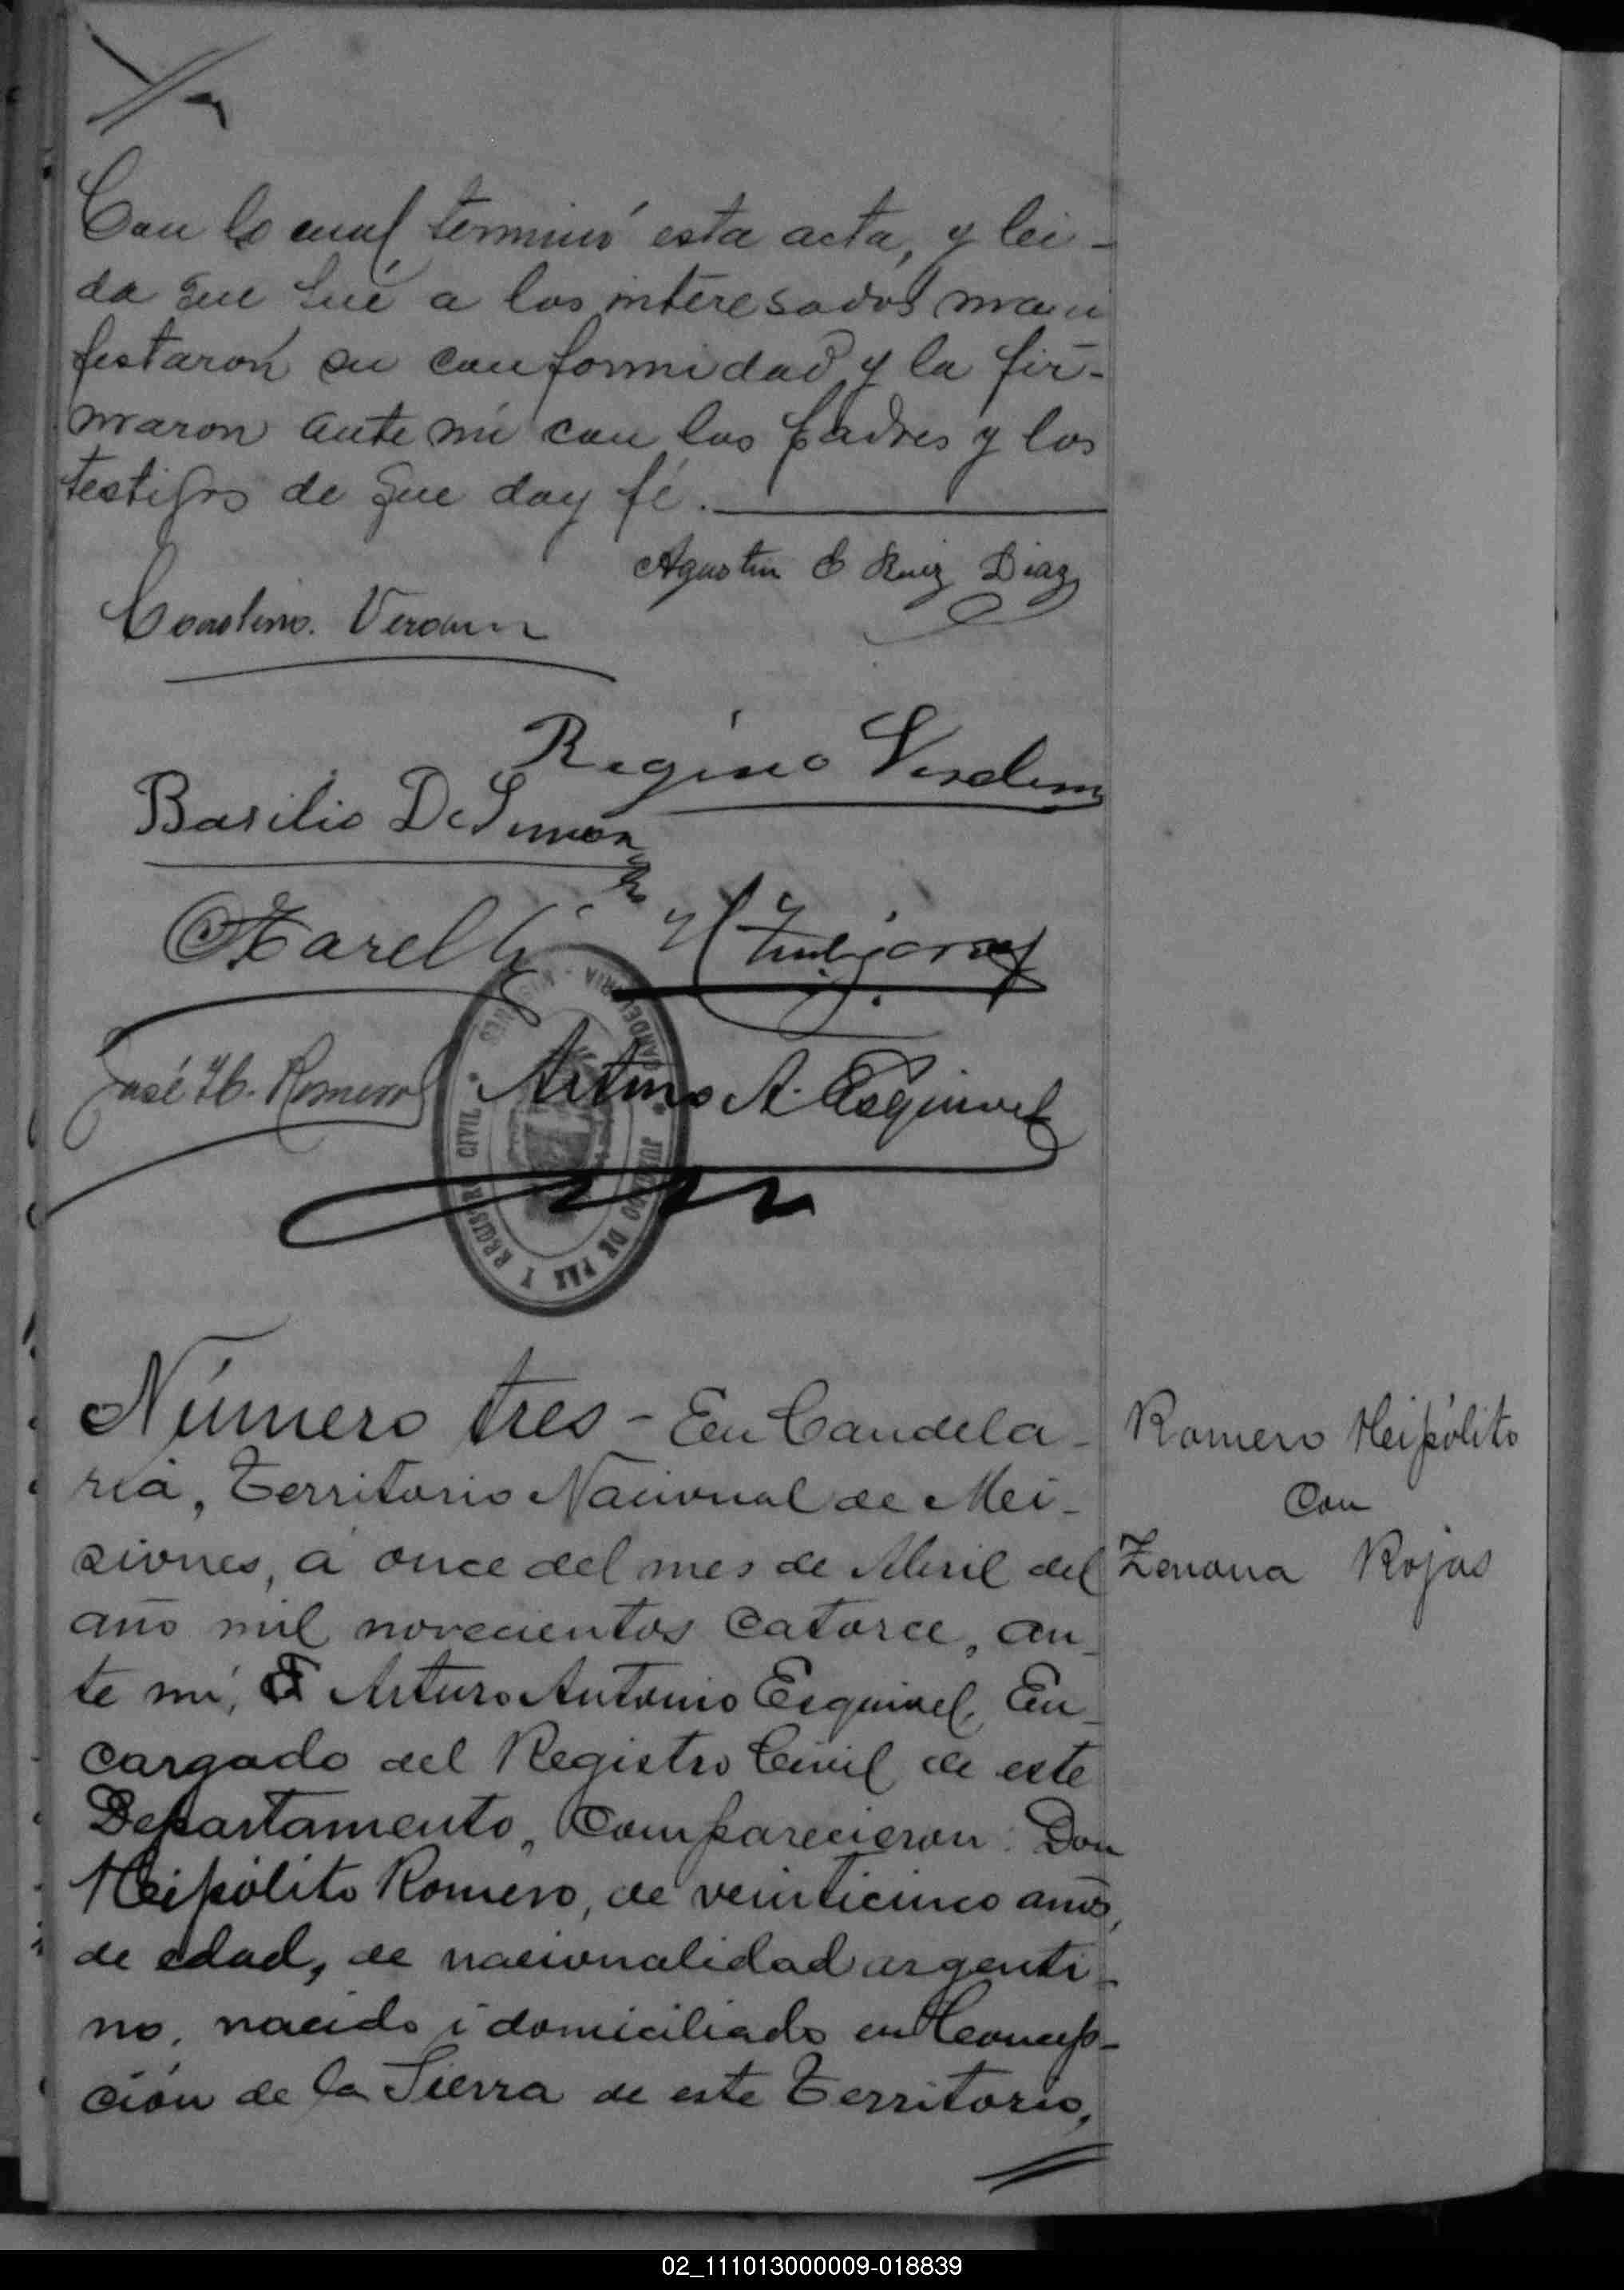 Con lo cual terminó esta acta, y lei-
da que fué a los interesados mani
festaron su conformidad y la fir-
maron ante mi con los padres y los
testigos de que doy fé.
Agustin E Ruiz Diaz
Regino Verdun
Basilio De Simon
José H. Romero
Arturo A. Esquivel
JUZGADO DE PAZ Y REGISTRO CIVIL
CANDELARIA - MISIONES
Número tres - En Candela-
ria, Territorio Nacional de Mi-
siones, á once del mes de Abril del
año mil novecientos catorce, an-
te mi, Arturo Antonio Esquivel, En-
cargado del Registro Civil de este
Departamento, Comparecieron: Don
Hipólito Romero, de veinticinco años,
de edad, de nacionalidad argenti-
no, nacido i domiciliado en Concep-
ción de la Sierra de este Territorio,
Romero Hipólito
Con
Zenona Rojas
02_111013000009-018839